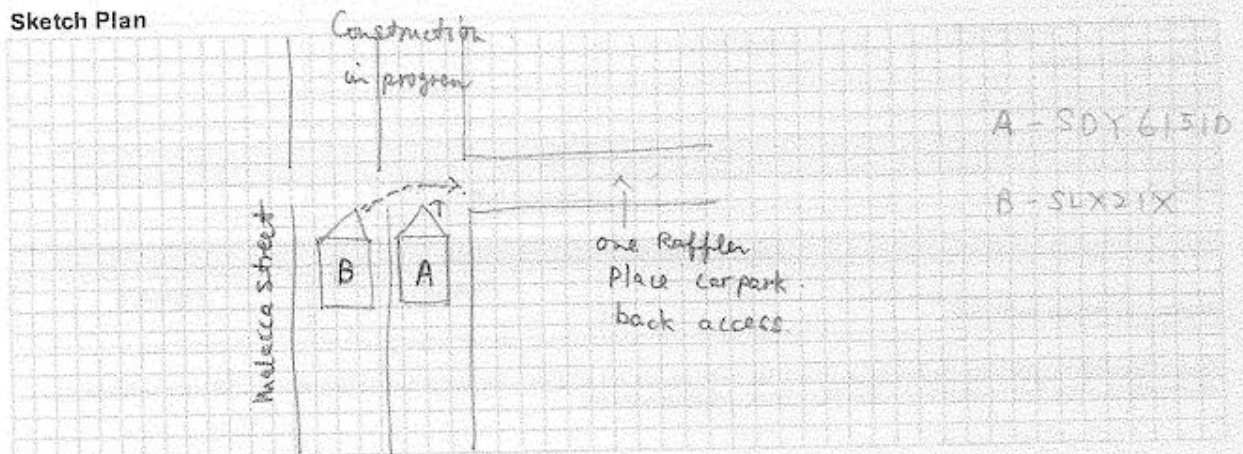 Sketch Plan
Construction
in progren
A - SDY6151D
B - SLX21X
Malacca Street
B
A
one Raffler
Place carpark.
back access.